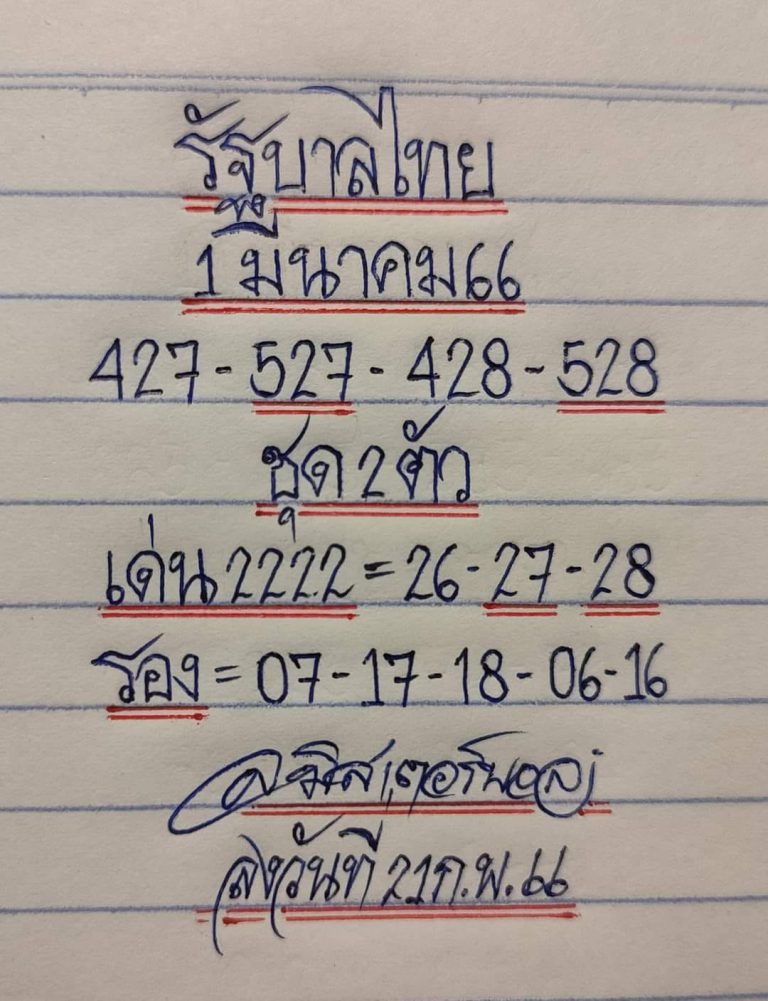 รัฐบาลไทย
1 มีนาคม 66
427 - 527 - 428 - 528
ชุด 2 ตัว
เด่น 2222 = 26 - 27 - 28
รอง = 07 - 17 - 18 - 06 - 16
มิสเตอร์
ลงวันที่ 21 ก.พ. 66